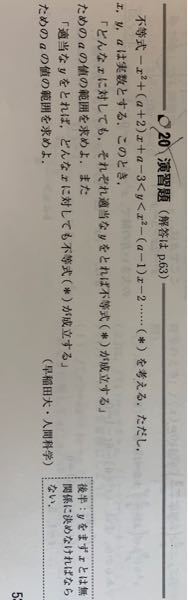 20 演習題 (解答は p.63)
不等式 −x²+(a+2)x+a−3<y<x²−(a−1)x−2……(*) を考える．ただし，
x, y, a は実数とする．このとき，
「どんな x に対しても，それぞれ適当な y をとれば不等式(*)が成立する」
ための a の値の範囲を求めよ．また
「適当な y をとれば，どんな x に対しても不等式(*)が成立する」
ための a の値の範囲を求めよ．
(早稲田大・人間科学)
後半：y をまず x とは無
関係に決めなければなら
ない．